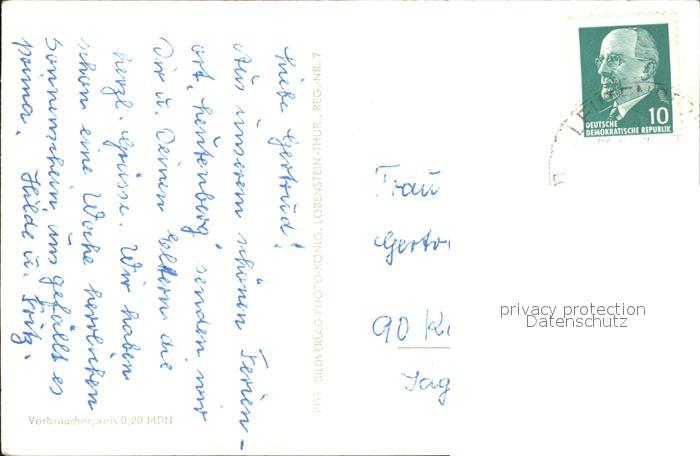 Liebe Gertrud!
Aus unserem schönen Ferien-
ort "Leutenberg" senden wir
Dir u. Deinen Eltern die
herzl. Grüsse. Wir haben
schon eine Woche herrlichen
Sonnenschein, uns gefällt es
prima. Hilde u. Fritz.
Verbraucherpreis 0,20 MDN
BILDVERLAG PHOTO-KÖNIG, LOBENSTEIN-THÜR., REG.-NR. 7
10
DEUTSCHE
DEMOKRATISCHE REPUBLIK
Frau
Gertr
90 K
Jag
privacy protection
Datenschutz